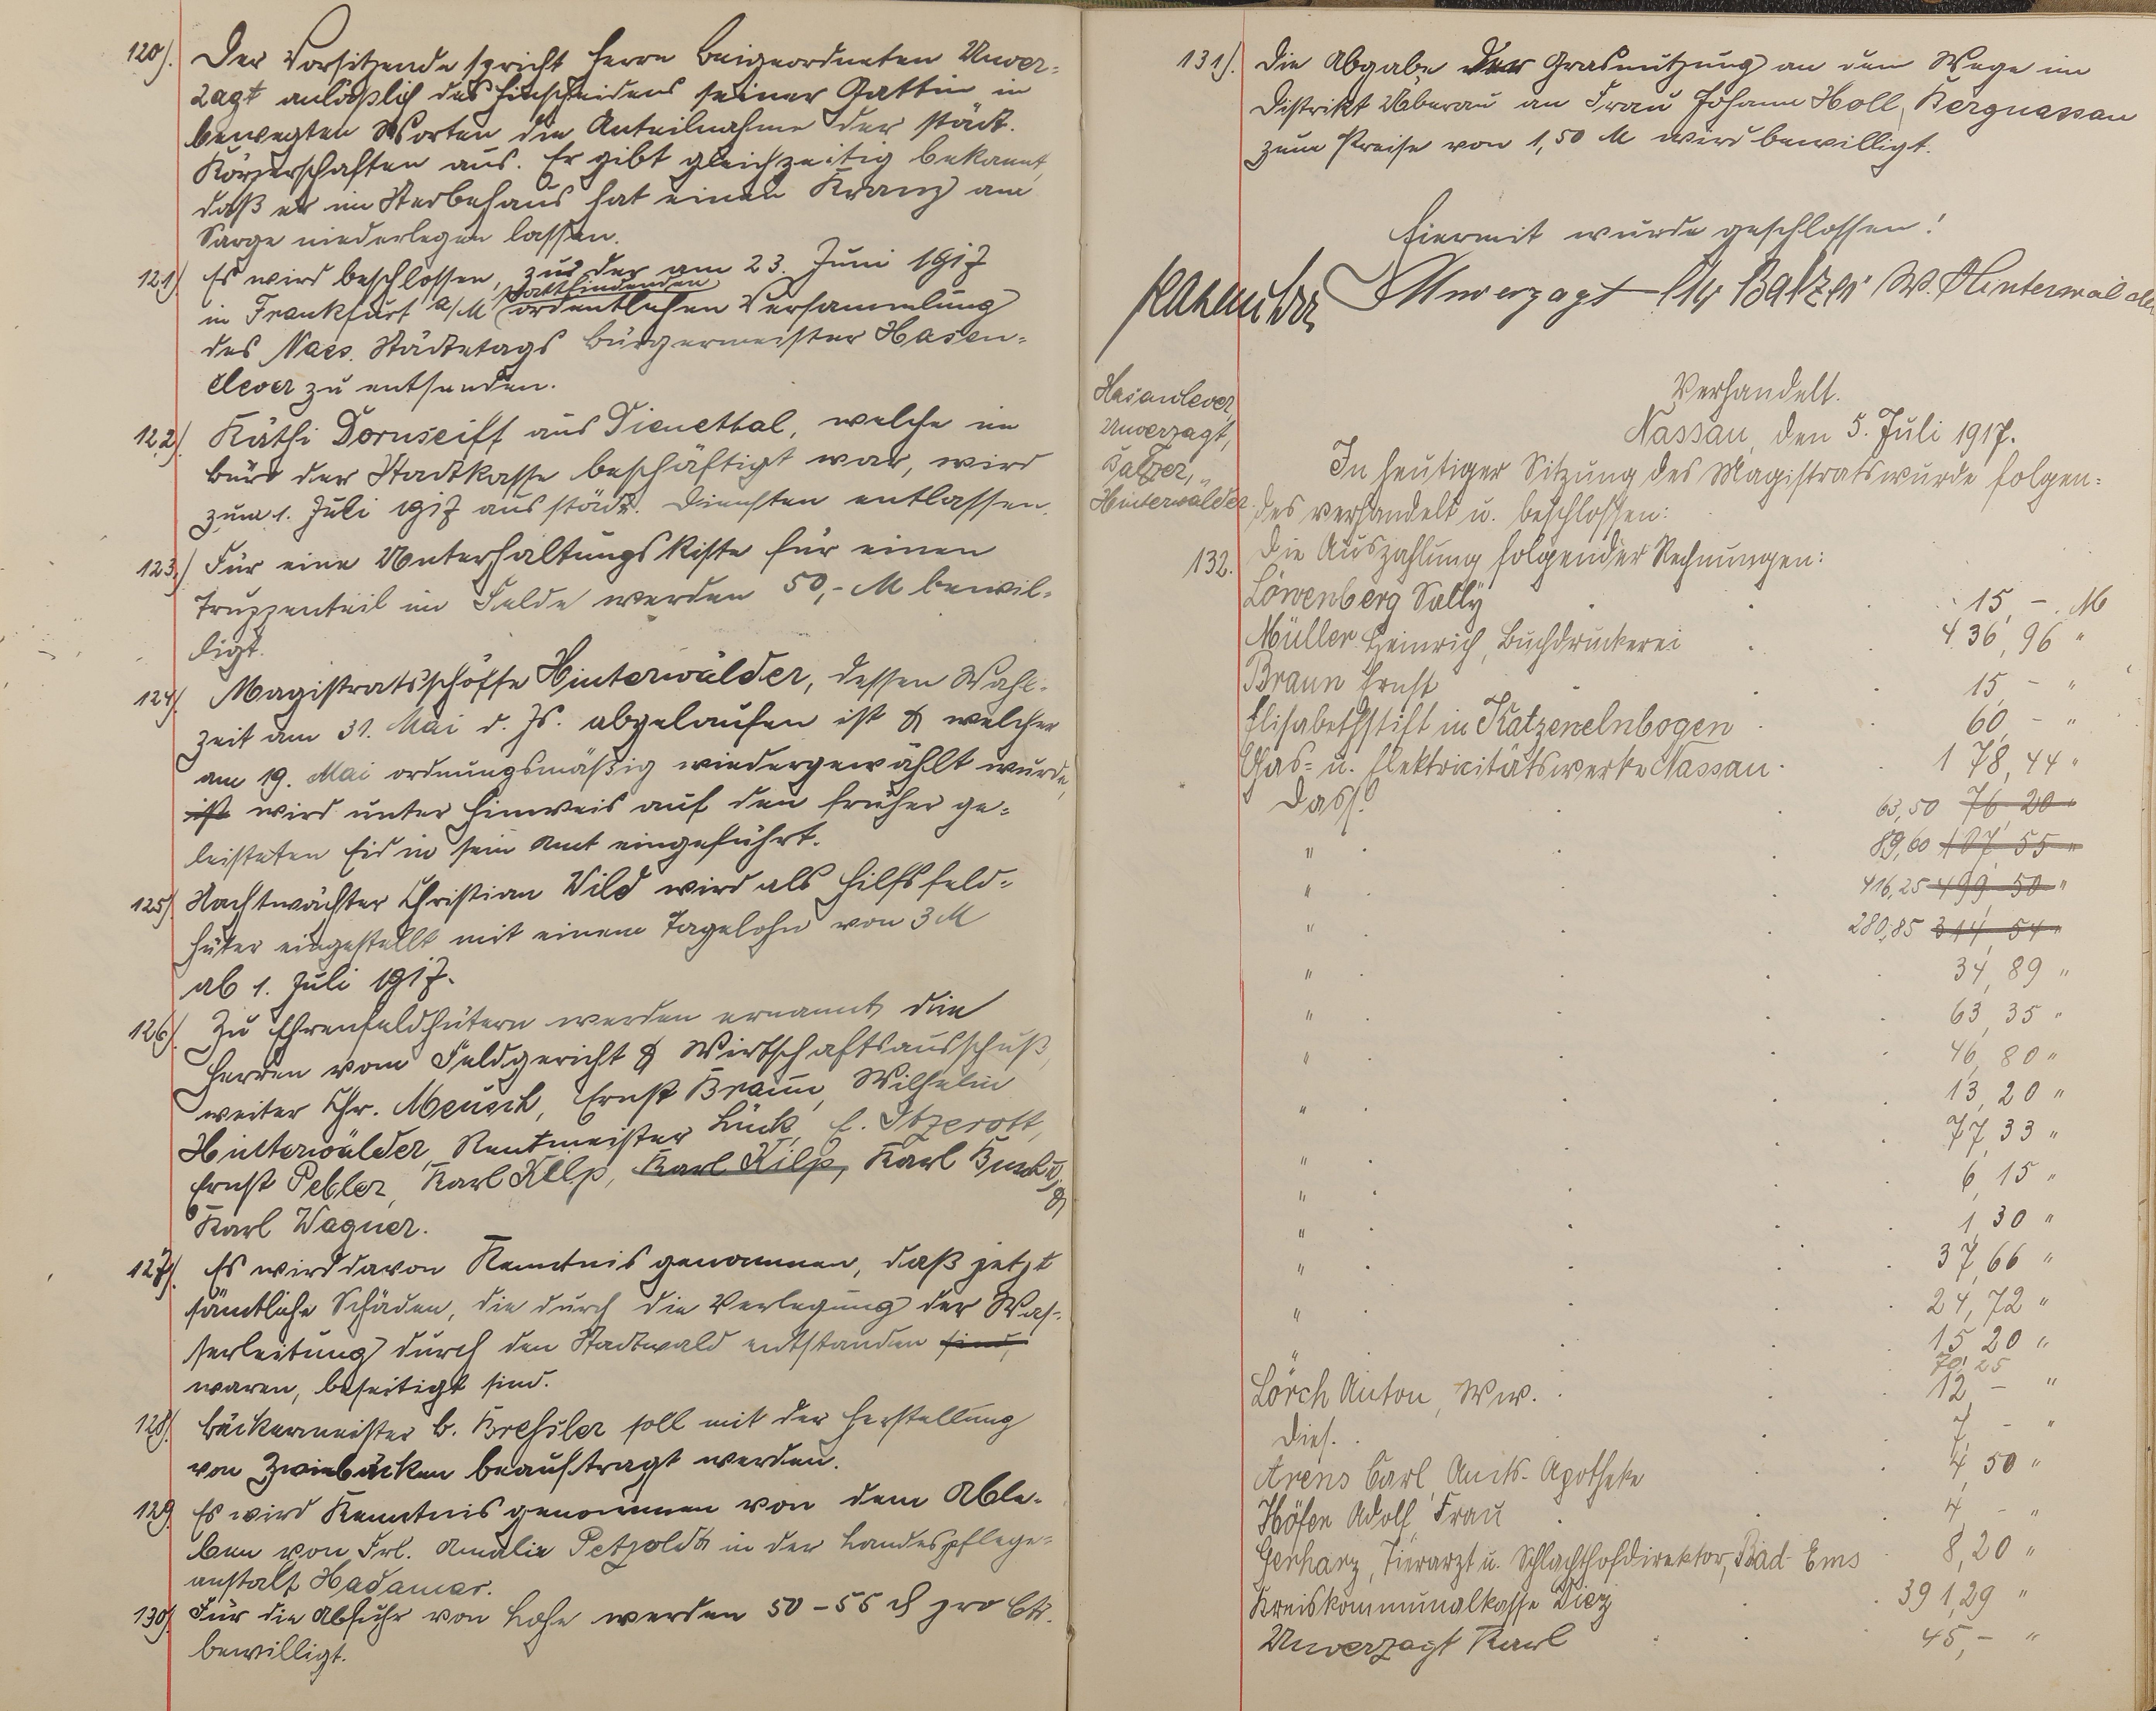 120). Der Vorsitzende spricht Herrn Beigeordneten Unver-
zagt anläßlich des Hinscheidens seiner Gattin in
bewegten Worten die Anteilnahme der städt.
Körperschaften aus. Er gibt gleichzeitig bekannt,
daß er im Sterbehaus hat einen Kranz am
Sarge niederlegen lassen.
121) Es wird beschlossen, zu der am 23. Juni 1917
in Frankfurt a/M stattfindenden ordentlichen Versammlung
des Nass. Städtetags Bürgermeister Hasen-
clever zu entsenden.
122) Käthi Dornseiff aus Dienethal, welche im
Büro der Stadtkasse beschäftigt war, wird
zum 1. Juli 1917 aus städt. Diensten entlassen.
123.) Für eine Unterhaltungskiste für einen
Truppenteil im Felde werden 50,- M bewil-
ligt.
124) Magistratsschöffe Hinterwälder, dessen Wahl-
zeit am 31. Mai d. Js. abgelaufen ist & welcher
am 19. Mai ordnungsmäßig wiedergewählt wurde,
ist wird unter Hinweis auf den früher ge-
leisteten Eid in sein Amt eingeführt.
125) Nachtwächter Christian Vild wird als Hilfsfeld-
hüter eingestellt mit einem Tagelohn von 3 M
ab 1. Juli 1917.
126) Zu Ehrenfeldhütern werden ernannt die
Herren vom Feldgericht & Wirtschaftsausschuß,
weiter Chr. Meusch, Ernst Braun, Wilhelm
Hinterwälder, Rentmeister Lück, E. Itzerott,
Ernst Pebler, Karl Kilp, Karl Kilp, Karl Busch &
Karl Wagner.
127) Es wird davon Kenntnis genommen, daß jetzt
sämtliche Schäden, die durch die Verlegung der Was-
serleitung durch den Stadtwald entstanden sind,
waren, beseitigt sind.
128) Bäckermeister C. Bressler soll mit der Herstellung
von Zwiebäcken beauftragt werden.
129. Es wird Kenntnis genommen von dem Able-
ben von Frl. Amalie Petzoldt in der Landespflege-
anstalt Hadamar.
130) Für die Abfuhr von Lohe werden 50 - 55 ₰ pro Ctr.
bewilligt.
131). Die Abgabe der Grasnutzung an dem Wege im
Distrikt Uberau an Frau Johann Holl, Bergnassau
zum Preise von 1,50 M wird bewilligt.
Hiermit wurde geschlossen!
Hasenclever Unverzagt Chr Balzer W. Hinterwälder
Hasenclever,
Unverzagt,
Balzer, "
Hinterwälder.
Verhandelt.
Nassau, den 5. Juli 1917.
In heutiger Sitzung des Magistrats wurde folgen-
des verhandelt u. beschlossen:
132. Die Auszahlung folgender Rechnungen:
Löwenberg Sally 15,- M
Müller Heinrich, Buchdruckerei 436,96 "
Braun Ernst 15,- "
Elisabethstift in Katzenelnbogen 60,- "
Gas- u. Elektricitätswerke Nassau 178,44 "
Dass. 63,50 76,20 "
" 89,60 107,55 "
" 416,25 499,50 "
" 280,85 344,54 "
" 34,89 "
" 63,35 "
" 46,80 "
" 13,20 "
" 77,33 "
" 6,15 "
" 1,30 "
" 37,66 "
" 24,72 "
" 15,20 "
70,25
Lörch Anton, Ww. 12,- "
Dies. 7,- "
Arens Carl, Amts-Apotheke 4,50 "
Höfer Adolf, Frau 4,- "
Gerharz, Tierarzt u. Schlachthofdirektor, Bad-Ems 8,20 "
Kreiskommunalkasse Diez 391,29 "
Unverzagt Karl 45,- "